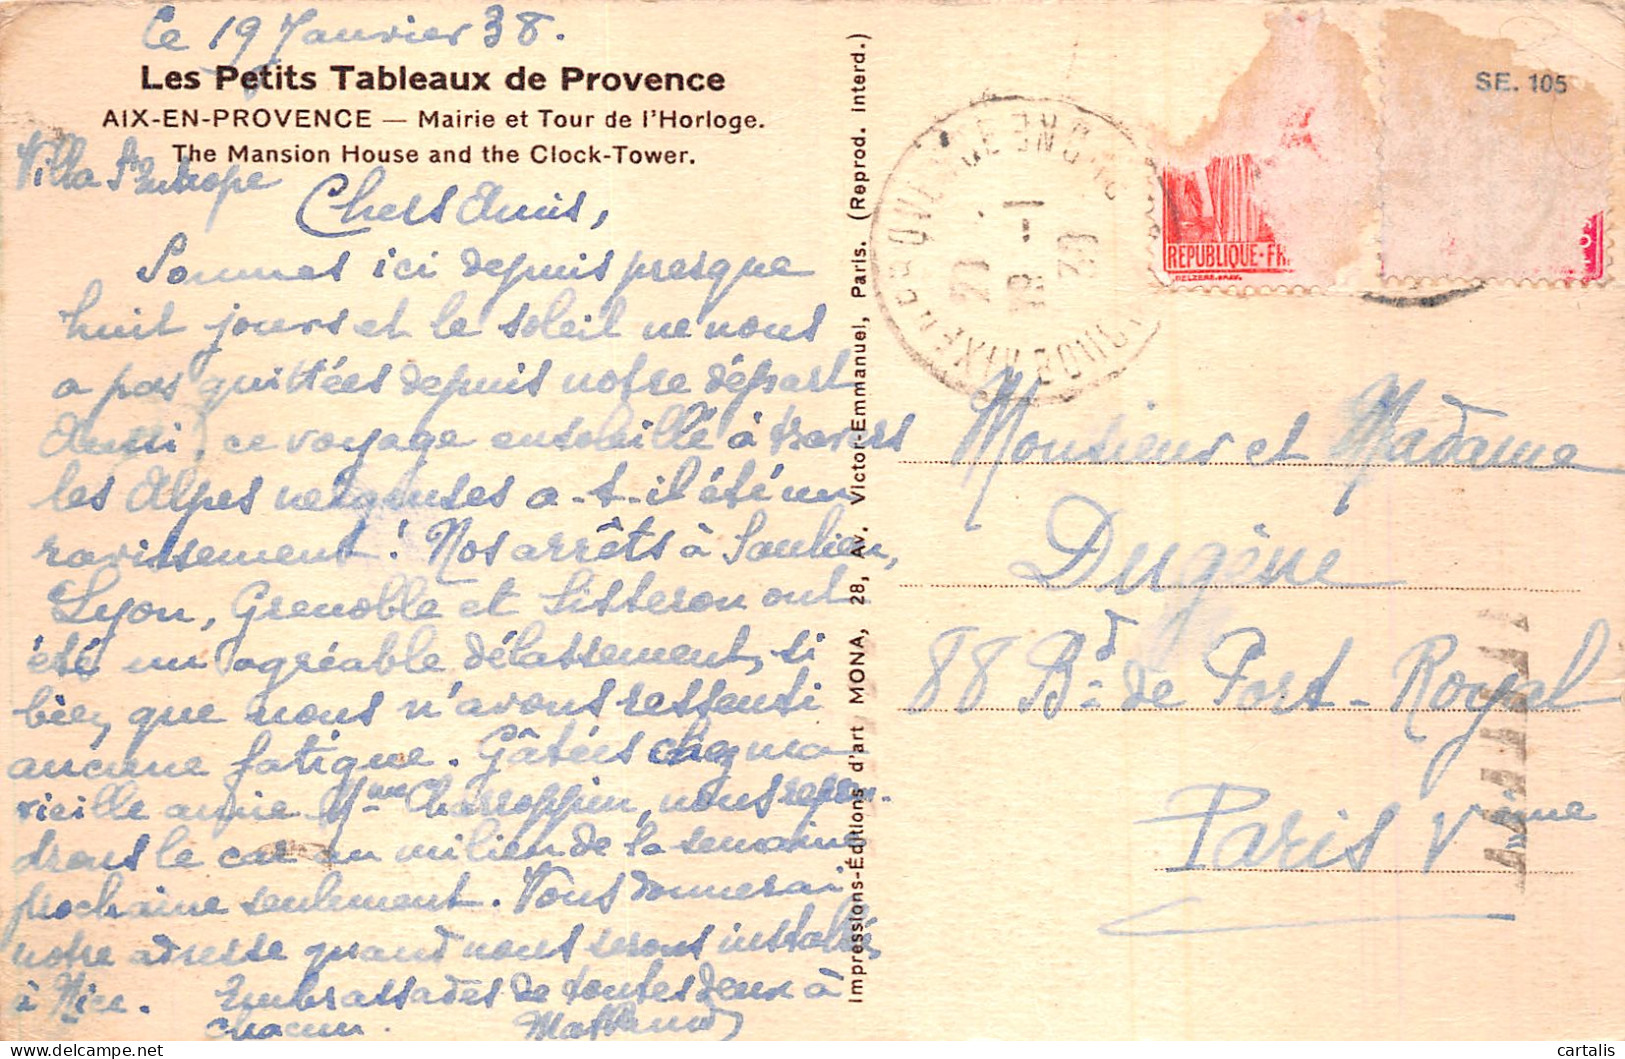 Ce 19 Janvier 38.
Les Petits Tableaux de Provence
AIX-EN-PROVENCE — Mairie et Tour de l'Horloge.
The Mansion House and the Clock-Tower.
Villa St Eutrope
Chers Amis,
Sommes ici depuis presque
huit jours et le soleil ne nous
a pas quittées depuis notre départ
Aussi, ce voyage ensoleillé à travers
les Alpes neigeuses a-t-il été un
ravissement ! Nos arrêts à Saulieu,
Lyon, Grenoble et Sisteron ont
été un agréable délassement, si
bien, que nous n'avons ressenti
aucune fatigue. Gâtées chez ma
vieille amie Mme nous repren-
drons le car au milieu de la semaine
prochaine seulement. Vous donnerai
notre adresse quand nous serons installées
à Nice. Embrassades de toutes deux à
chacun.
Impressions-Éditions d'art MONA, 28, Av. Victor-Emmanuel, Paris. (Reprod. Interd.)
SE. 105
REPUBLIQUE-FR
AIX EN PROVENCE
BOUCHES DU RHONE
Monsieur et Madame
Dugène
88 Bd de Port-Royal
Paris Vème
cartalis